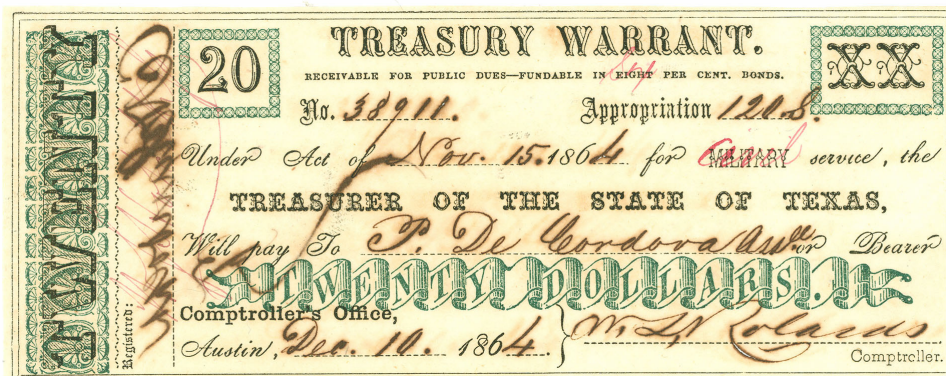 TWENTY
Registered:
20
TREASURY WARRANT.
XX
RECEIVABLE FOR PUBLIC DUES—FUNDABLE IN EIGHT PER CENT. BONDS.
No. 38911. Appropriation 120.8.
Under Act of Nov. 15. 1864 for MILITARY civil service, the
TREASURER OF THE STATE OF TEXAS,
Will pay To P. De Cordova or Bearer
TWENTY DOLLARS.
Comptroller's Office,
Austin, Dec. 10. 1864.
Comptroller.